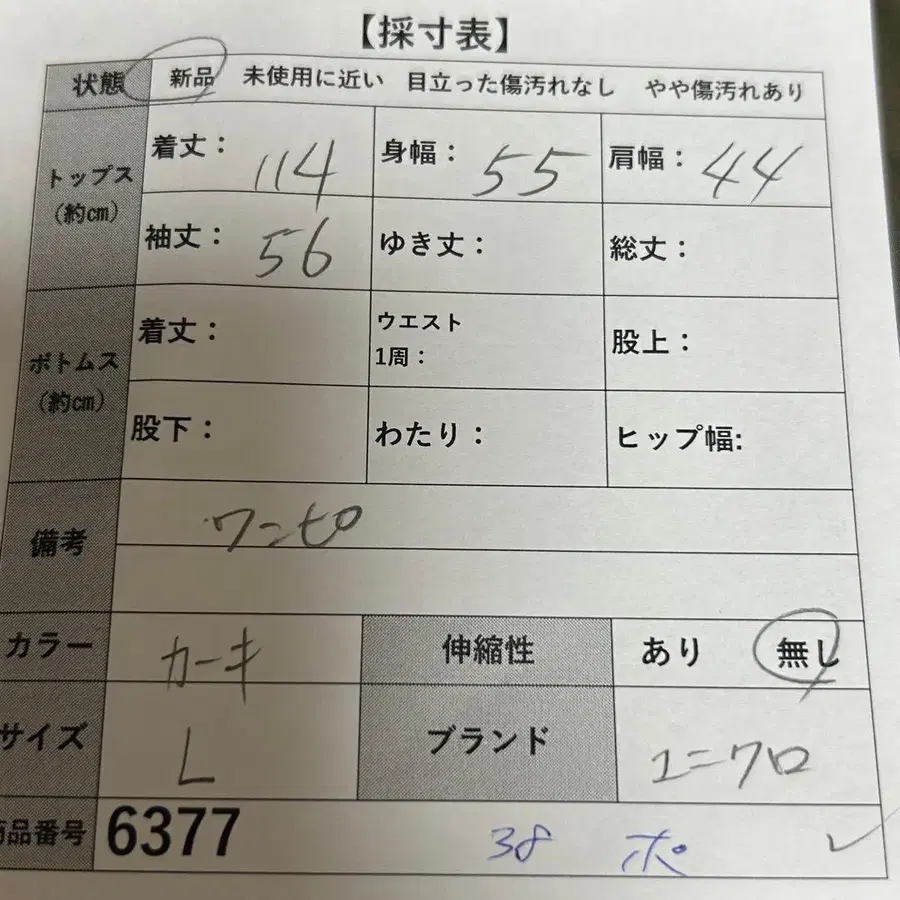 【採寸表】
状態 新品 未使用に近い 目立った傷汚れなし やや傷汚れあり
トップス(約cm) 着丈: 114 身幅: 55 肩幅: 44
袖丈: 56 ゆき丈: 総丈:
ボトムス(約cm) 着丈: ウエスト1周: 股上:
股下: わたり: ヒップ幅:
備考 ワンピ
カラー カーキ 伸縮性 あり 無し
サイズ L ブランド ユニクロ
商品番号 6377 38 ポ